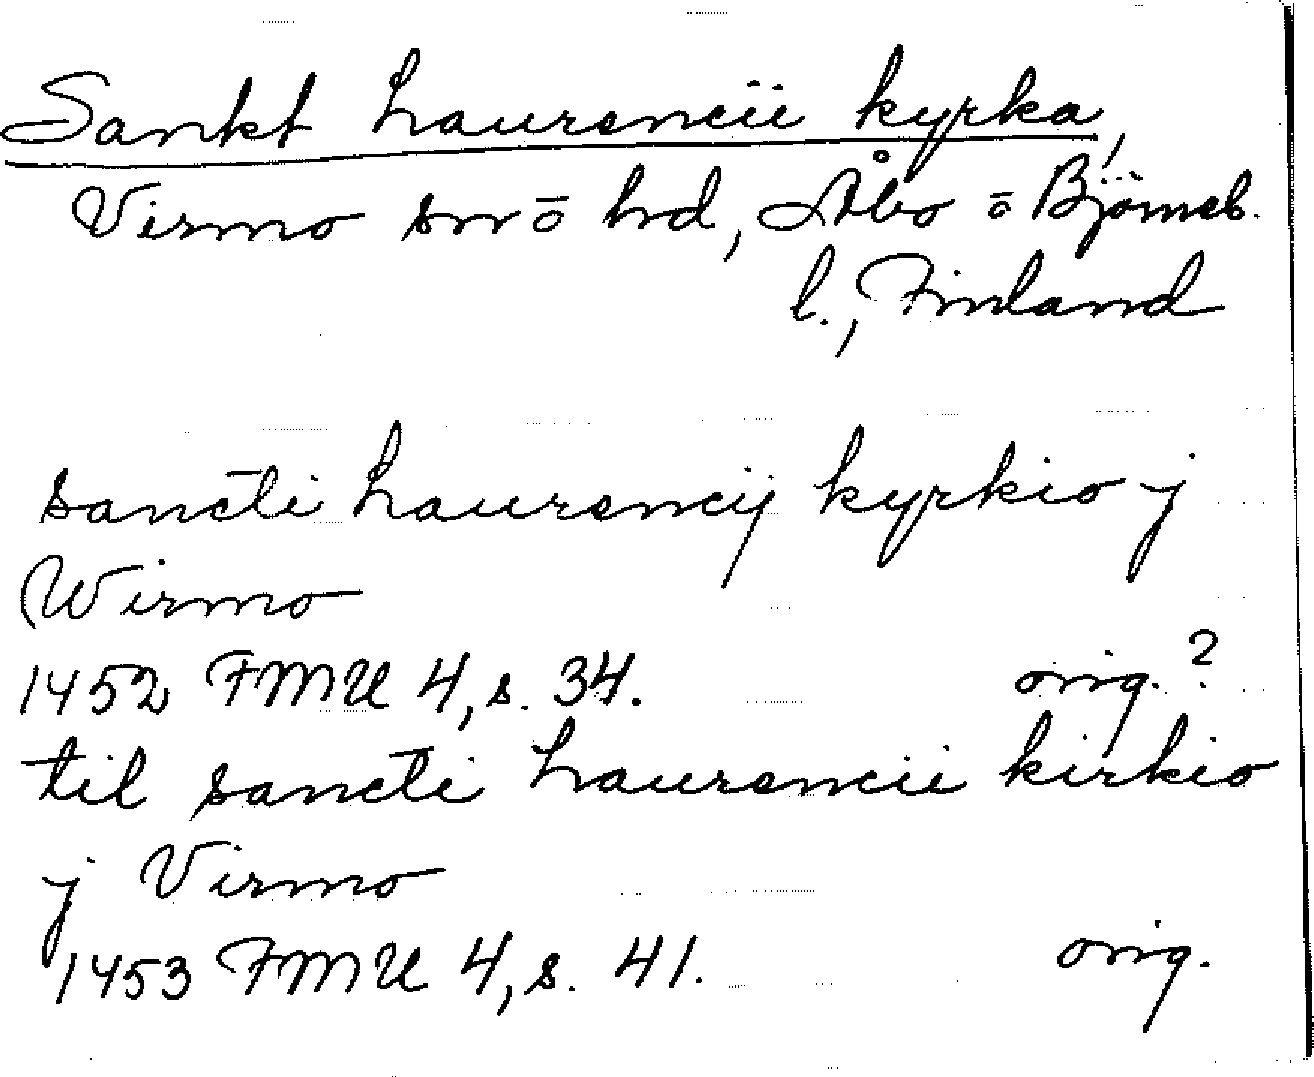 Sankt Laurencii kyrka,
Virmo sn ō hd, Åbo ō Björneb.
l., Finland
sancti Laurencij kyrkio j
Wirmo
1452 FMU 4, s. 34. orig.?
til sancti Laurencii kirkio
j Virmo
1453 FMU 4, s. 41. orig.